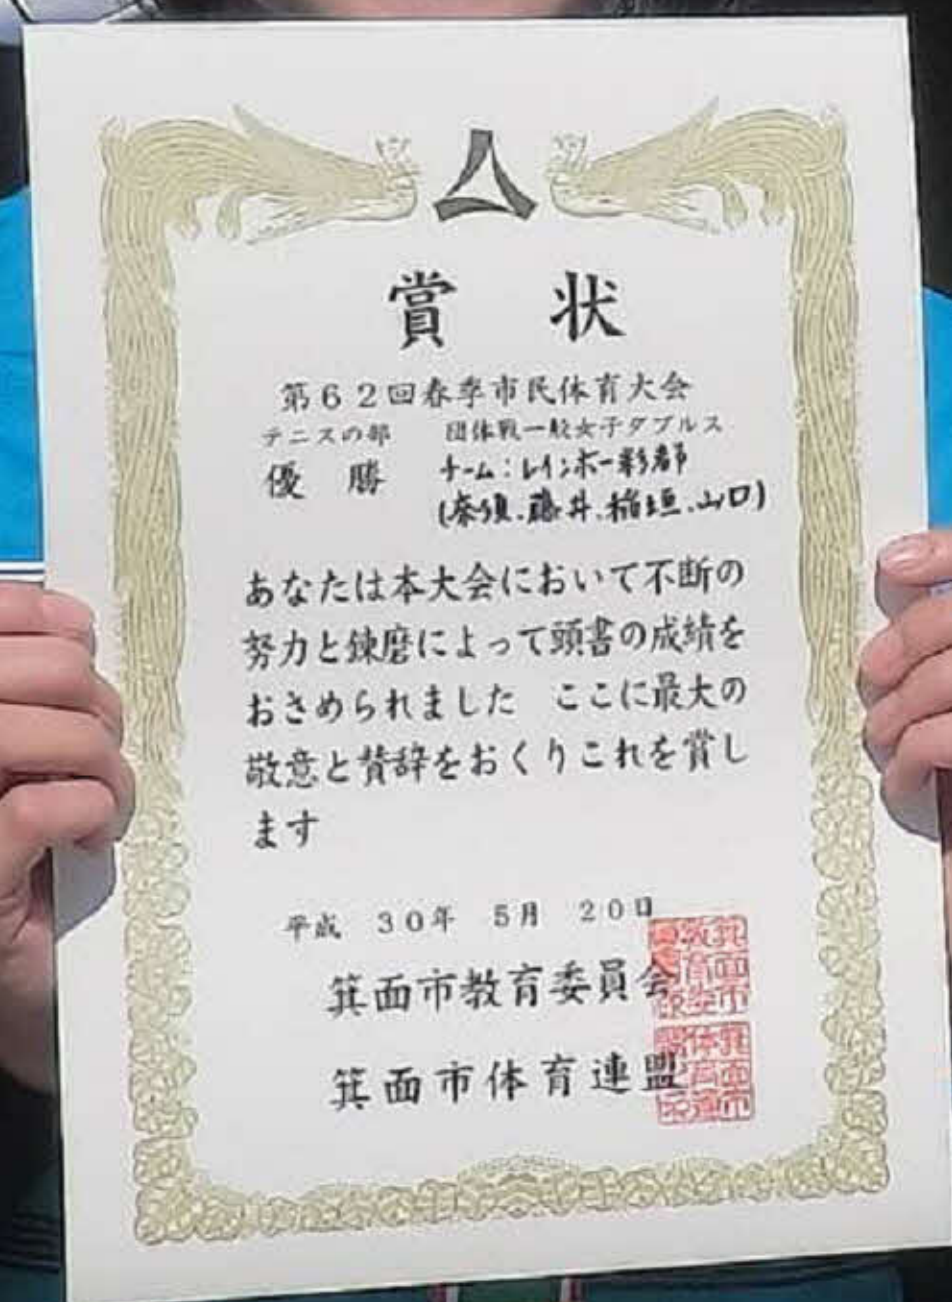 賞状
第62回春季市民体育大会
テニスの部 団体戦一般女子ダブルス
優勝 チーム:レインボー彩都
(奈須、藤井、稲垣、山口)
あなたは本大会において不断の
努力と錬磨によって頭書の成績を
おさめられました ここに最大の
敬意と賛辞をおくりこれを賞し
ます
平成 30年 5月 20日
箕面市教育委員会
箕面市体育連盟